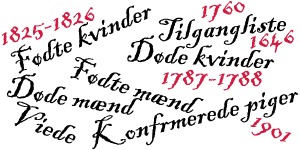 1825-1826
Fødte kvinder
1760
Tilgangliste
1646
Døde kvinder
Fødte mænd
1787-1788
Døde mænd
Viede
Konfrmerede piger
1901